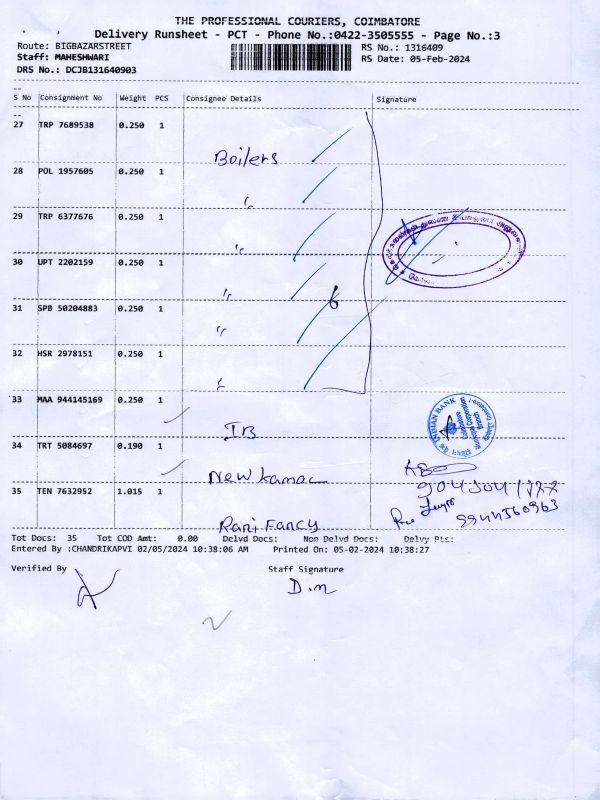 THE PROFESSIONAL COURIERS, COIMBATORE
Delivery Runsheet - PCT - Phone No.:0422-3505555 - Page No.:3
Route: BIGBAZARSTREET RS No.: 1316409
Staff: MAHESHWARI RS Date: 05-Feb-2024
DRS No.: DCJB131640903
S No Consignment No Weight PCS Consignee Details Signature
27 TRP 7689538 0.250 1
Boilers
28 POL 1957605 0.250 1
"
29 TRP 6377676 0.250 1
"
30 UPT 2202159 0.250 1
"
31 SPB 50204883 0.250 1 6
"
32 HSR 2978151 0.250 1
"
33 MAA 944145169 0.250 1
IB
INDIAN BANK
34 TRT 5084697 0.190 1
New Kamac
35 TEN 7632952 1.015 1
9944560963
Rani Fancy
Tot Docs: 35 Tot COD Amt: 0.00 Delvd Docs: Non Delvd Docs: Delvy Pts:
Entered By :CHANDRIKAPVI 02/05/2024 10:38:06 AM Printed On: 05-02-2024 10:38:27
Verified By Staff Signature
D.M